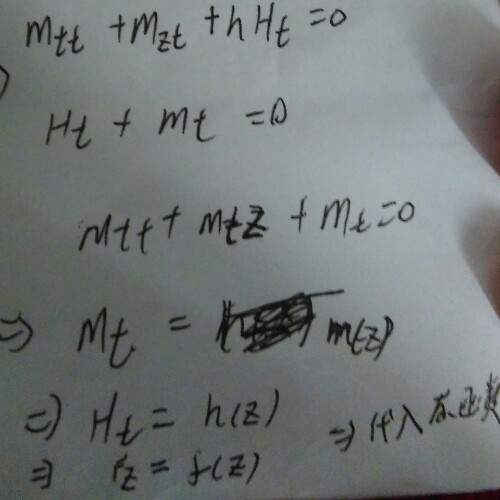 Mtt + Mzt + hHt = 0
Ht + Mt = 0
Mtt + Mtz + Mt = 0
⇒ Mt = m(z)
⇒ Ht = h(z) ⇒ 代入原函数
⇒ z = f(z)